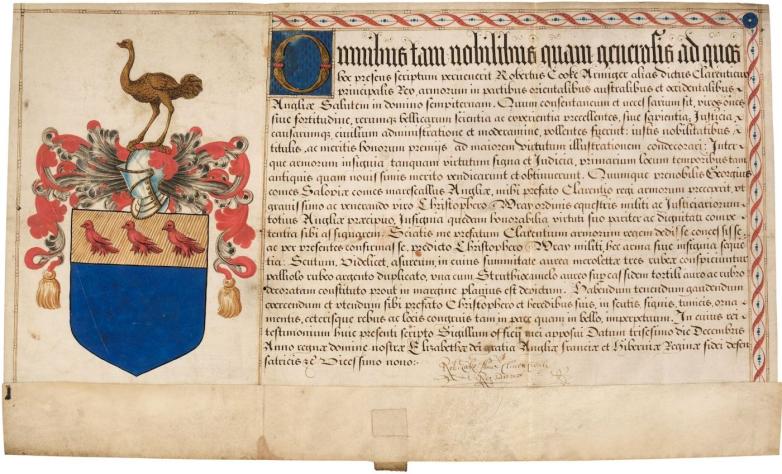 Omnibus tam nobilibus quam generosis ad quos
hoc presens scriptum pervenerit Robertus Cooke Armiger alias dictus Clarentius
principalis Rex armorum in partibus orientalibus australibus et occidentalibus
Angliæ Salutem in domino sempiternam. Quum consentaneum et necessarium sit, viros omes
sive fortitudine, rerumque bellicarum scientia ac experientia precellentes, sive sapientia, Justicia,
causarumque, civilium administratione et moderamine, pollentes fuerint: iustis nobilitatibus,
titulis, ac meritis honorum premijs ad maiorem virtutum illustrationem condecorari: Inter
que armorum insignia tanquam virtutum signa et Judicia, primarium locum temporibus tam
antiquis quam novissimis merito vendicarunt et obtinuerunt. Quumque prenobilis Georgius
comes Salopiæ comes marescallus Angliæ, mihi prefato Clarentio regi armorum preceperit, ut
gravissimo ac venerando viro Christophero Wray ordinis equestris militi ac Justiciariorum
totius Angliæ præcipuo, Insignia quedam honorabilia virtuti sue pariter ac dignitati compe
tentia sibi assignarem. Sciatis me prefatum Clarentium armorum regem dedisse concessisse,
ac per presentes confirmasse, predicto Christophero Wray militi hec arma sive insignia seque
tia: Scutum, Videlicet, asureum, in cuius summitate aurea merolettæ tres rubeæ conspiciuntur
palliolo rubeo argento duplicato, una cum Struthiocamelo aureo supra cassidem tortili auro ac rubro
decoratam constituto prout in margine planius est depictum. Habendum tenendum gaudendum
exercendum et utendum sibi prefato Christophero et heredibus suis, in scutis, signis, tunicis, orna
mentis, ceterisque rebus ac locis congruis tam in pace quam in bello, imperpetuum. In cuius rei
testimonium huic presenti scripto Sigillum officij mei apposui Datum trisesimo die Decembris
Anno regnæ dominæ nostræ Elizabethæ dei gratia Angliæ franciæ et Hiberniæ Reginæ fidei defen
satricis &c Vicessimo nono: